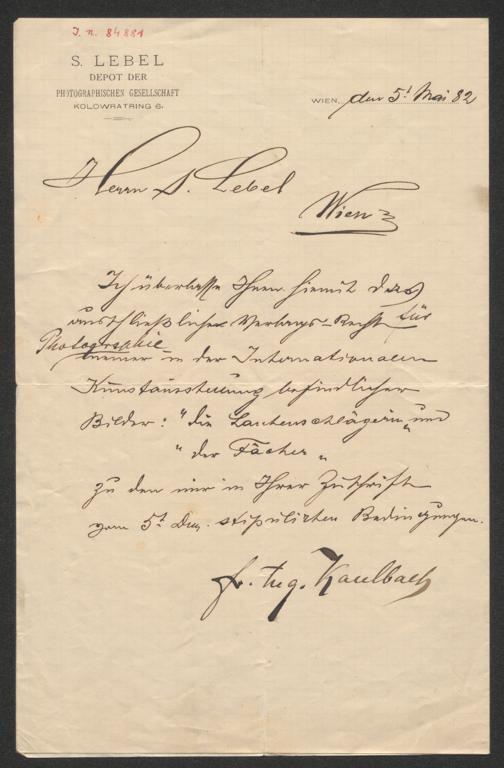 J. n. 84881
S. LEBEL
DEPOT DER
PHOTOGRAPHISCHEN GESELLSCHAFT
KOLOWRATRING 6.
WIEN, den 5t Mai 82
Herrn S. Lebel
Wien
Ich überlasse Ihnen hiemit das
ausschließliche Verlags-Recht für
Photographie
meiner in der Internationalen
Kunstausstellung befindlichen
Bilder: "die Lautenschlägerin" und
"der Fächer"
zu den mir in Ihrer Zuschrift
vom 5t stipulirten Bedingungen.
Fr. Aug. Kaulbach